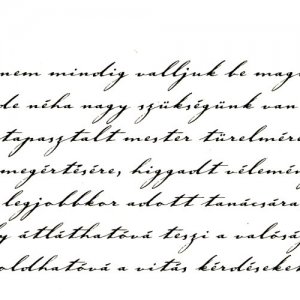 nem mindig valljuk be mag
de néha nagy szükségünk van
tapasztalt mester türelmére
megértésére, higgadt vélemén
legjobbkor adott tanácsára
y átláthatóvá teszi a valós
oldhatóvá a vitás kérdéseket